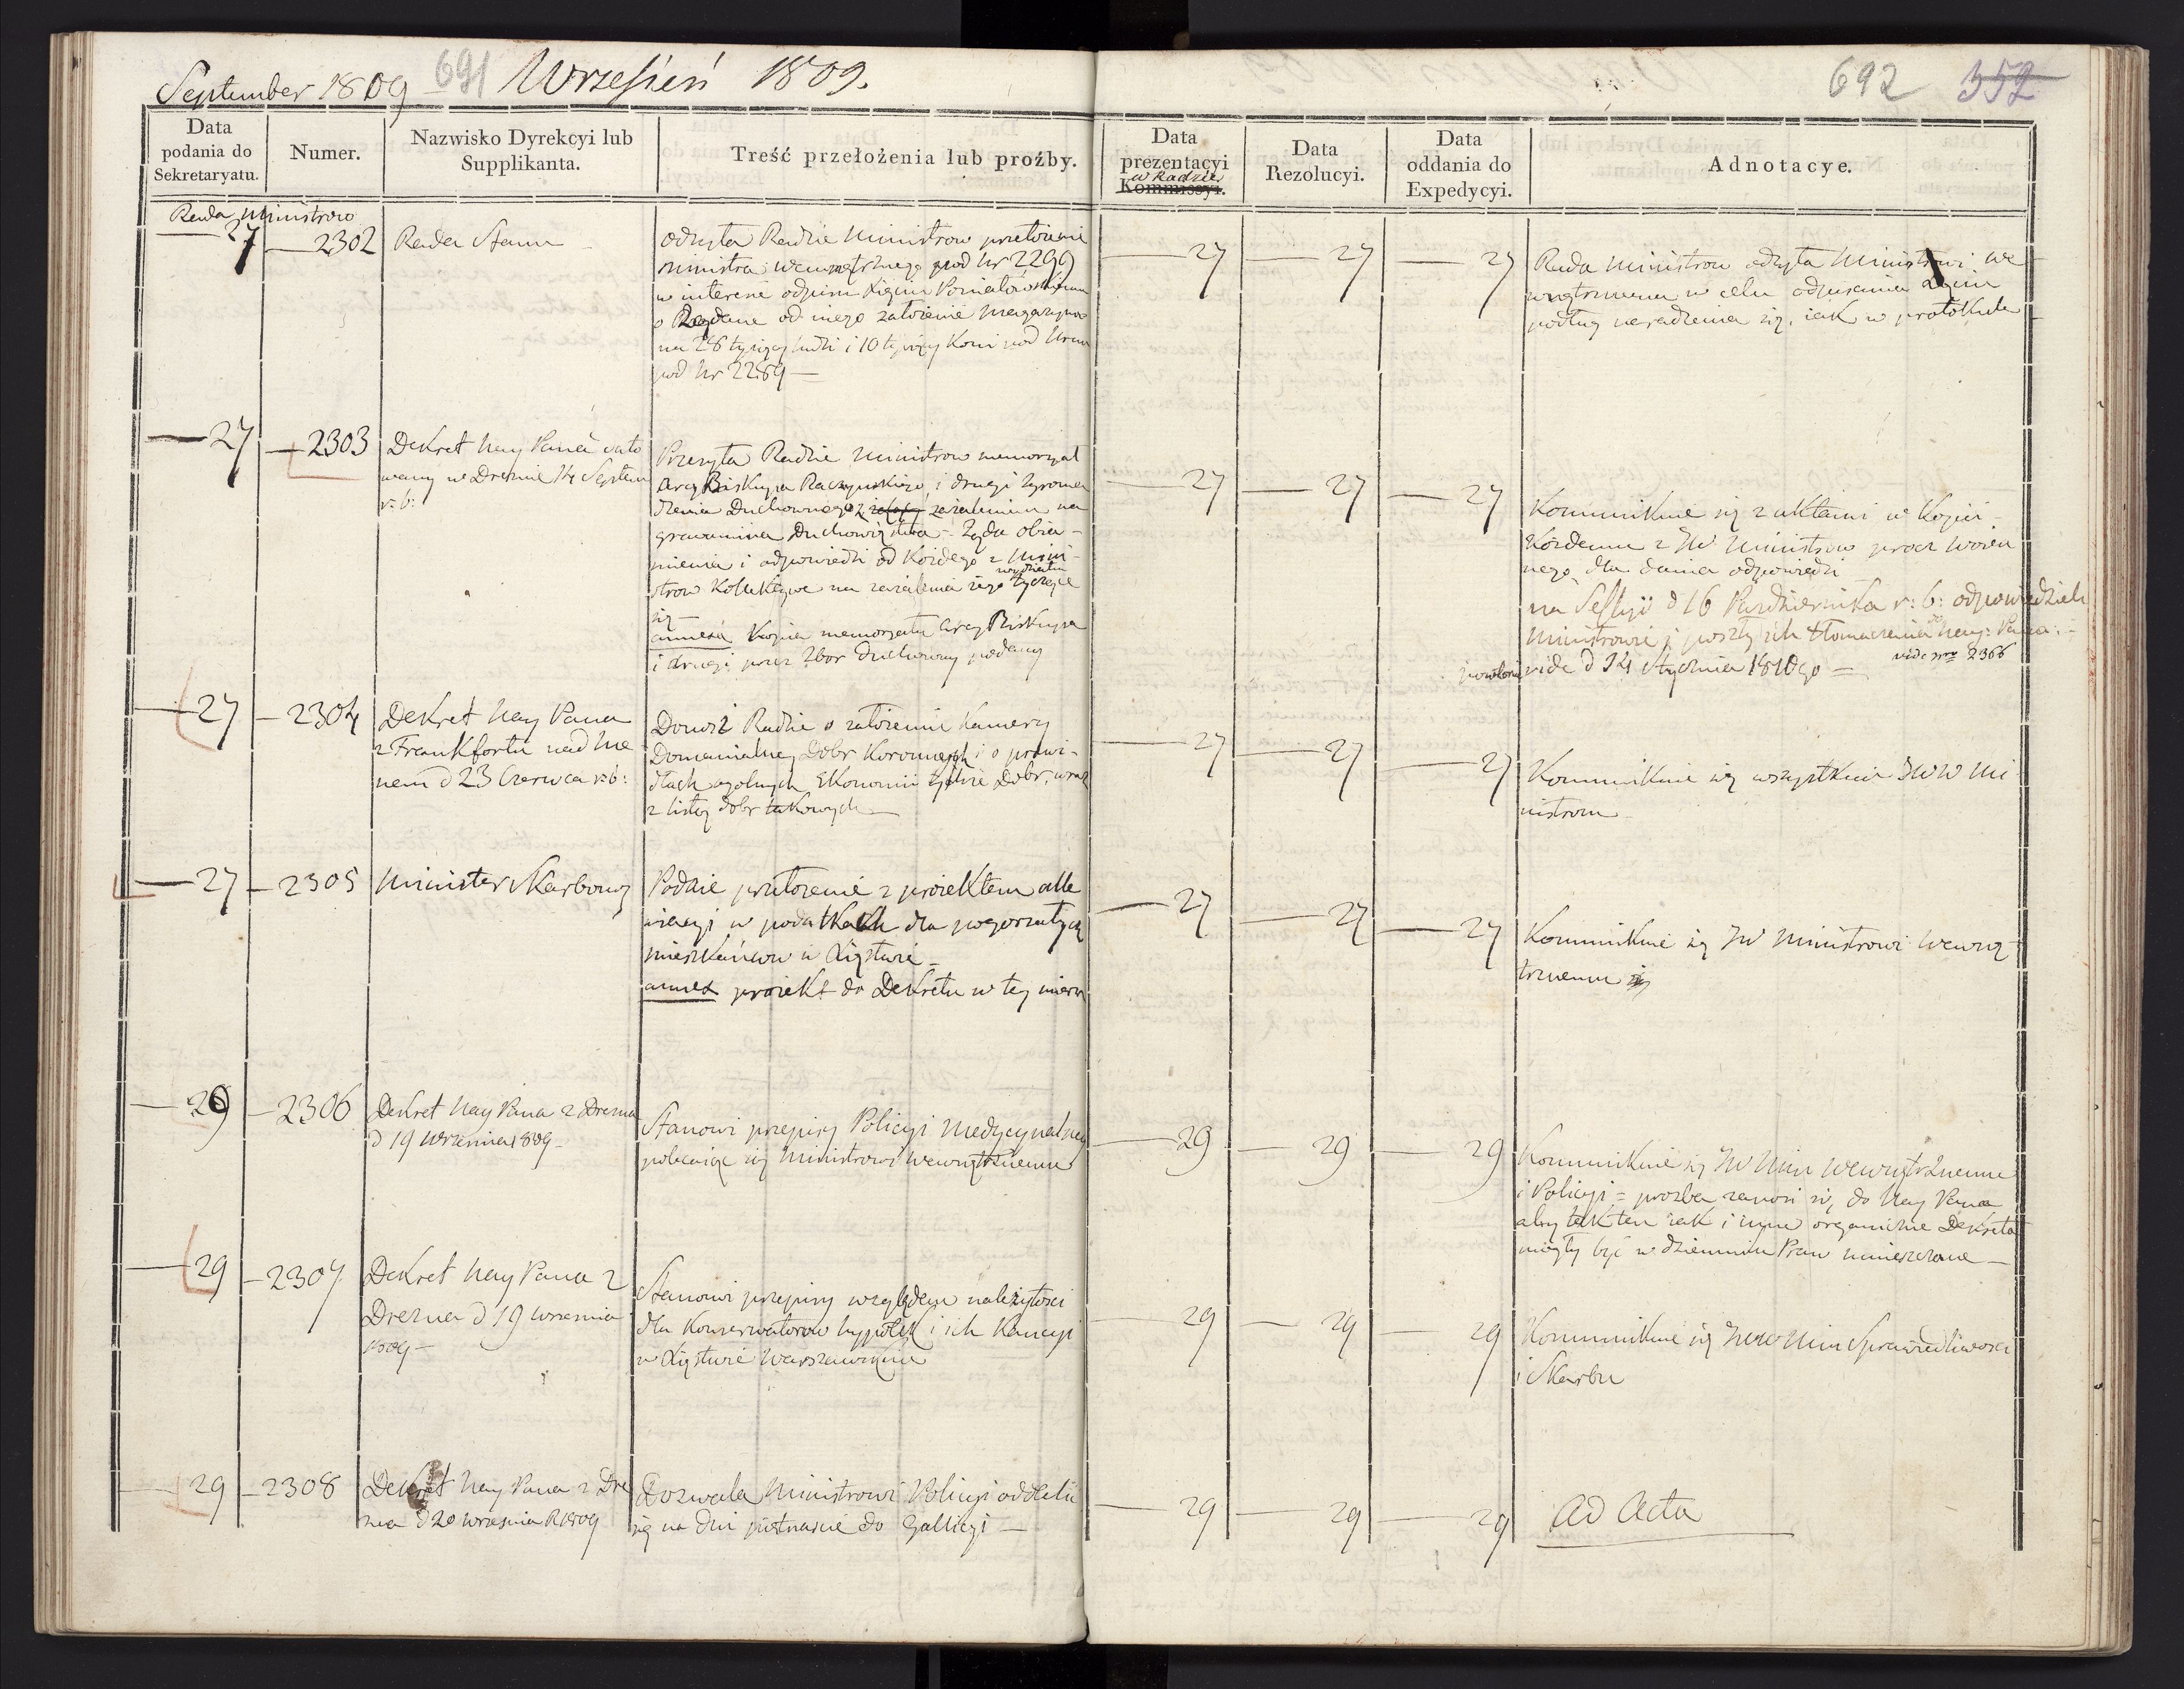 September 1809
691
Wrzesień 1809.
692
352
Data podania do Sekretaryatu.
Numer.
Nazwisko Dyrekcyi lub Supplikanta.
Treść przełożenia lub proźby.
Data prezentacyi w Radzie Kommissyi.
Data Rezolucyi.
Data oddania do Expedycyi.
Adnotacye.
Rada Ministrow
27
2302
Rada Stanu
odsyła Radzie Ministrow przełożenie
Ministra Wewnętrznego pod Nr 2299
w interesie odpisu Xięciu Poniatowskiemu
o żądane od niego założenie Magazynow
na 26 tysięcy ludzi i 10 tysięcy koni pod
pod Nr 2289
27
27
27
Rada Ministrow odsyła Ministrowi We
wnętrznemu w celu odpisania Xięciu
podług naradzenia się, iak w protokule
27
2303
Dekret Nay Pana dato
wany w Dreznie 14 Septem
r: b:
Przesyła Radzie Ministrow memoryał
Arcy Biskupa Raczynskiego i drugi Zgroma
dzenia Duchownego z zażaleniem na
gravamina Duchowieństwa - Żąda obia-
śnienia i odpowiedzi od każdego z Mini-
strow kollektywe na zażalenia iego wydziału tyczące
się
annexa kopia memoryału Arcy Biskupa
i drugi przez Zbor Duchowny podany
27
27
27
Kommunikuie się z aktami w kopii
każdemu z JW Ministrow przez Wozne
nego dla dania odpowiedzi
na Sessyi d 16 Pazdziernika r: b: odpowiedzieli
Ministrowie i poszły ich tłomaczenia do Nay: Pana.
vide nro 2366
powtorne vide d 24 stycznia 1810go
27
2304
Dekret Nay Pana
z Frankfortu nad Me
nem d 23 Czerwca r: b:
Donosi Radzie o założeniu Kamery
Domanialney Dobr Koronnych i o prawi-
dłach ogolnych Ekonomii tychże Dobr, wraz
z listą dobr takowych
27
27
27
Kommunikuie się wszystkim JWW Mi
nistrom
27
2305
Minister Skarbowy
Podaie przełożenie z proiektem alle
wiacyi w podatkach dla pogorzałych
mieszkańcow w Xięstwie
annex proiekt do Dekretu w tey mierze
27
27
27
Kommunikuie się JW Ministrowi Wewnę
trznemu
29
2306
Dekret Nay Pana z Drezna
d 19 Września 1809
Stanowi przepisy Policyi Medycynalney
polecaiąc się Ministrowi Wewnętrznemu
29
29
29
Kommunikuie się JW Min Wewnętrznemu
i Policyi = prozba zanosi się do Nay Pana
aby tak ten iak i inne organiczne Dekreta
mogły być w dzienniku Praw umieszczone
29
2307
Dekret Nay Pana z
Drezna d 19 Wrzesnia
1809
Stanowi przepisy względem należytosci
dla Konserwatorow hyppotek i ich Kaucyi
w Xięstwie Warszawskim
29
29
29
Kommunikuie się JWW Min Sprawiedliwosci
i Skarbu
29
2308
Dekret Nay Pana z Dre
zna d 20 Wrzesnia R 1809
Dozwala Ministrowi Policyi oddalić
się na dni piętnascie do Gallicyi
29
29
29
Ad Acta